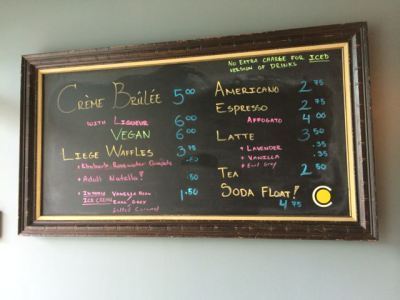 NO EXTRA CHARGE FOR ICED
VERSION OF DRINKS
CRÈME BRÛLÉE 5.00
WITH LIQUEUR 6.00
VEGAN 6.00
LIEGE WAFFLES 3.75
+ Rhubarb Rosewater .50
+ Adult Nutella! .50
+ IN HOUSE ICE CREAM VANILLA BEAN 1.50
EARL GREY
Salted Caramel
AMERICANO 2.75
ESPRESSO 2.75
AFFOGATO 4.00
LATTE 3.50
+ LAVENDER .35
+ VANILLA .35
+ Earl Grey
TEA 2.50
SODA FLOAT! 4.75